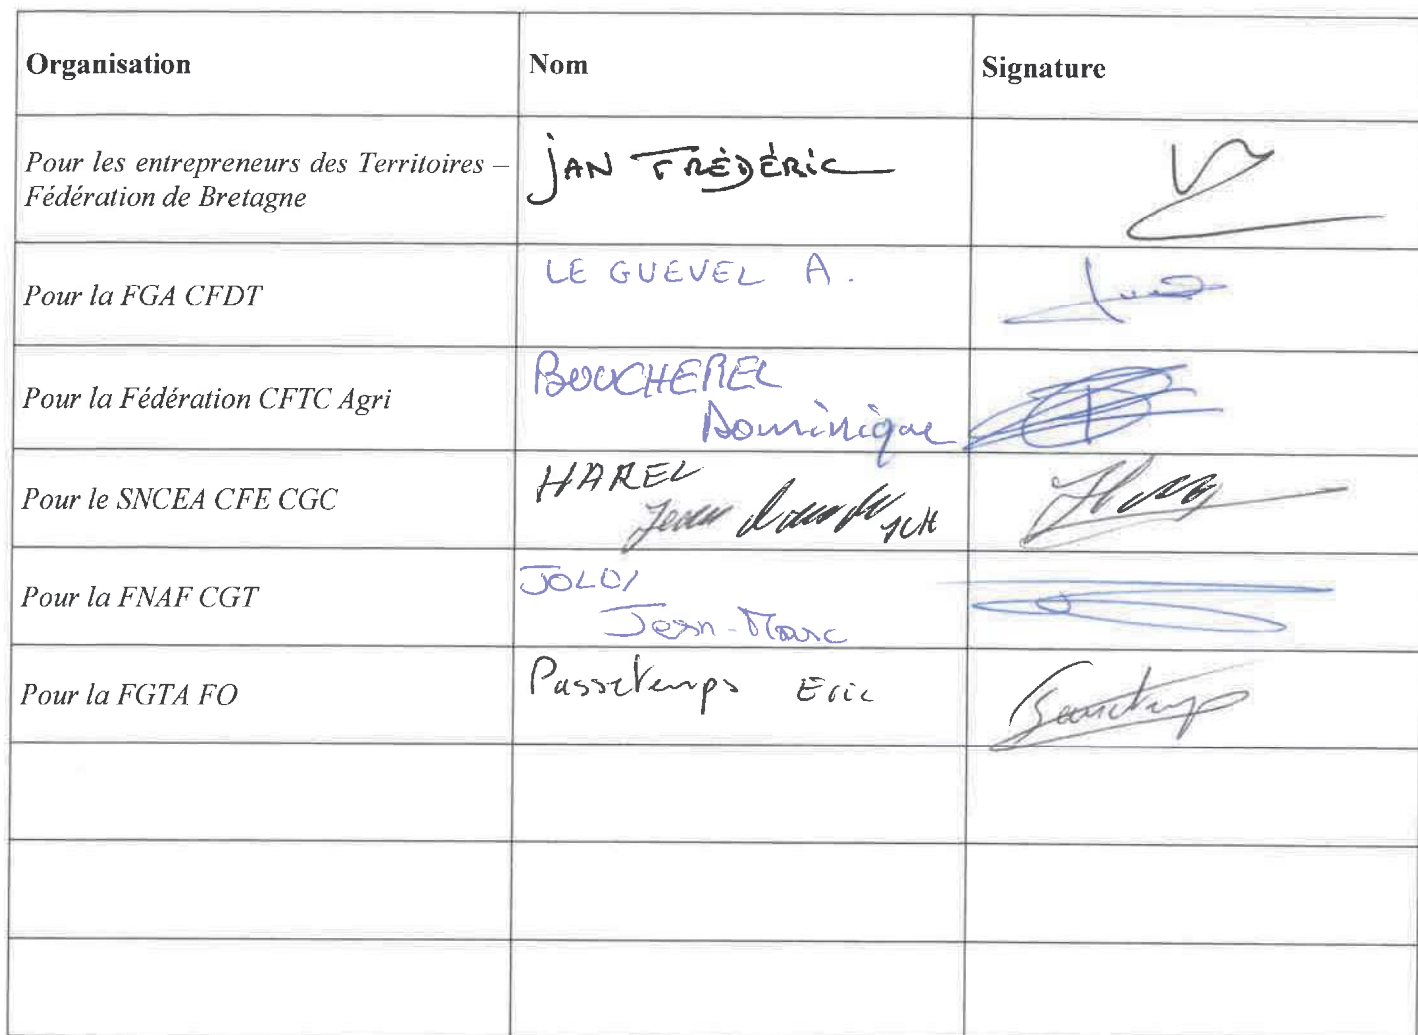 Organisation
Nom
Signature
Pour les entrepreneurs des Territoires –
Fédération de Bretagne
JAN FRÉDÉRIC
Pour la FGA CFDT
LE GUEVEL A.
Pour la Fédération CFTC Agri
BOUCHEREL
Dominique
Pour le SNCEA CFE CGC
HAREL
Jean
Pour la FNAF CGT
Jean-Marc
Pour la FGTA FO
Passetemps Eric